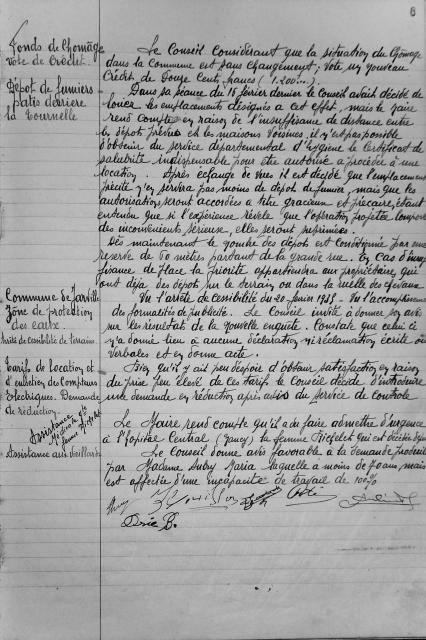 6
Fonds de Chômage
Vote de Crédit.
Le Conseil considérant que la situation du Chômage
dans la Commune est sans changement; Vote un nouveau
Crédit de Douze Cents francs (1.200...).
Dépôt de fumiers
partis derrière
la Tournelle
Dans sa séance du 16 février dernier le Conseil avait décidé de
louer les emplacements désignés à cet effet, mais le Maire
rend compte en raison de l'insuffisance de distance entre
le dépôt prévu et les maisons voisines, il n'est pas possible
d'obtenir du service départemental d'hygiène le Certificat de
salubrité indispensable pour être autorisé à procéder à une
location. Après échange de vues il est décidé que l'emplacement
précité n'en servira pas moins de dépôt de fumier, mais que les
autorisations seront accordées à titre gracieux et précaire, étant
entendu que si l'expérience révèle que l'opération projetée comporte
des inconvénients sérieux, elles seront supprimées.
Dès maintenant le nombre des dépôts est conditionné par une
réserve de 60 mètres partant de la grande rue. En cas d'insuf
fisance de place la priorité appartiendra aux propriétaires qui
ont déjà des dépôts sur le terrain ou dans la ruelle des
Commune de Jarville
Zone de protection
des eaux.
Vu l'arrêté de cessibilité du 20 février 1935 - Vu l'accomplissement
des formalités de publicité. Le Conseil invité à donner son avis
sur les résultats de la nouvelle enquête. Constate que celui-ci
n'a donné lieu à aucune déclaration ni réclamation écrite ou
verbales et en donne acte.
Arrêté de cessibilité de terrains.
Tarif de location et
d'entretien des Compteurs
électriques. Demande
de réduction.
Bien qu'il y ait peu d'espoir d'obtenir satisfaction en raison
du prix peu élevé de ces tarifs le Conseil décide d'introduire
une demande en réduction après avis du service de contrôle
Assistance
femme
Le Maire rend compte qu'il a dû faire admettre d'urgence
à l'hôpital Central (Nancy) la femme
Assistance aux vieillards
Le Conseil donne avis favorable à la demande produite
par Madame Aubry Maria laquelle a moins de 70 ans, mais
est affectée d'une incapacité de travail de 100%